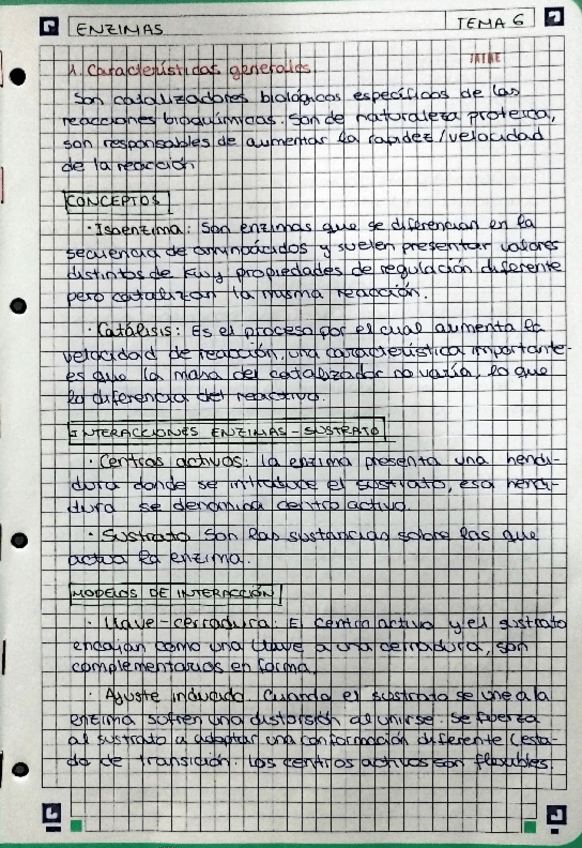 ENZIMAS
TEMA 6
1. Características generales.
Son catalizadores biológicos específicos de las
reacciones bioquímicas. Son de naturaleza proteica,
son responsables de aumentar la rapidez/velocidad
de la reacción
CONCEPTOS
· Isoenzima: Son enzimas que se diferencian en la
secuencia de aminoácidos y suelen presentar valores
distintos de Km y propiedades de regulación diferente
pero catalizan la misma reacción.
· Catálisis: Es el proceso por el cual aumenta la
velocidad de reacción, una característica importante
es que la masa del catalizador no varía, lo que
lo diferencia del reactivo.
INTERACCIONES ENZIMAS-SUSTRATO
· Centros activos: la enzima presenta una hendi-
dura donde se introduce el sustrato, esa hendi-
dura se denomina centro activo.
· Sustrato Son las sustancias sobre las que
actúa la enzima.
MODELOS DE INTERACCIÓN
· Llave-cerradura: El centro activo y el sustrato
encajan como una llave a una cerradura, son
complementarios en forma.
· Ajuste inducido. Cuando el sustrato se une a la
enzima sufren una distorsión al unirse. Se fuerza
al sustrato a adoptar una conformación diferente (esta-
do de transición. Los centros activos son flexibles.